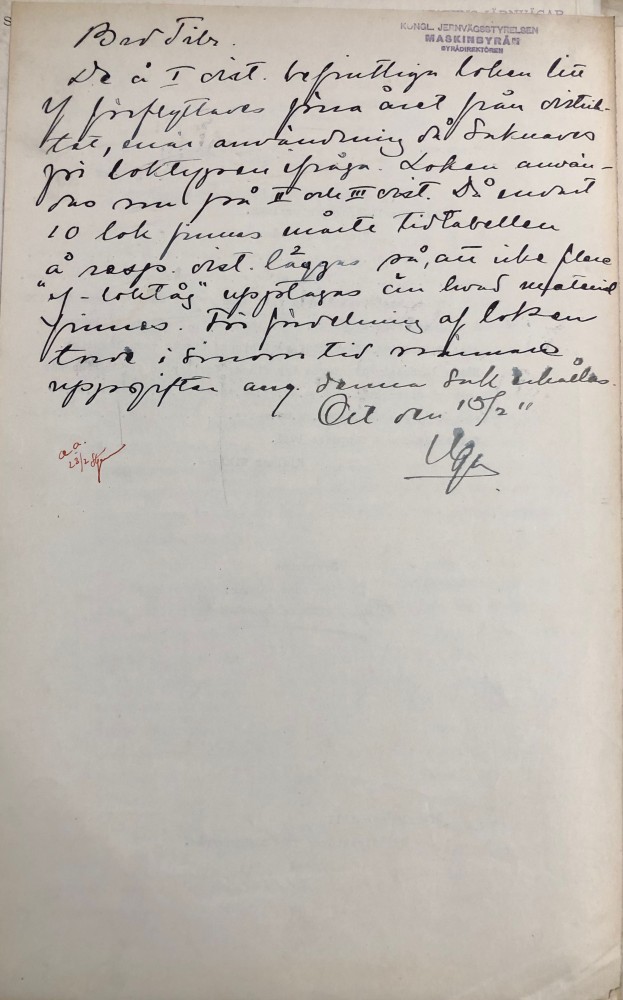 JÄRNVÄGAR
KUNGL. JERNVÄGSSTYRELSEN
MASKINBYRÅN
BYRÅDIREKTÖREN
De å I dist. befintliga loken litt
Y förflyttades förra året från distrik-
tet, enär användning då saknades
för loktypen ifråga. Loken använ-
das nu på II och III dist. Då endast
10 lok finnes måste tidtabellen
å resp. dist. läggas så, att icke flere
"Y-loktåg" upptagas än hvad material
finnes. För fördelning af loken
torde i sinom tid närmare
uppgifter ang. denna sak erhållas.
den 15/2 11
a.a.
23/2